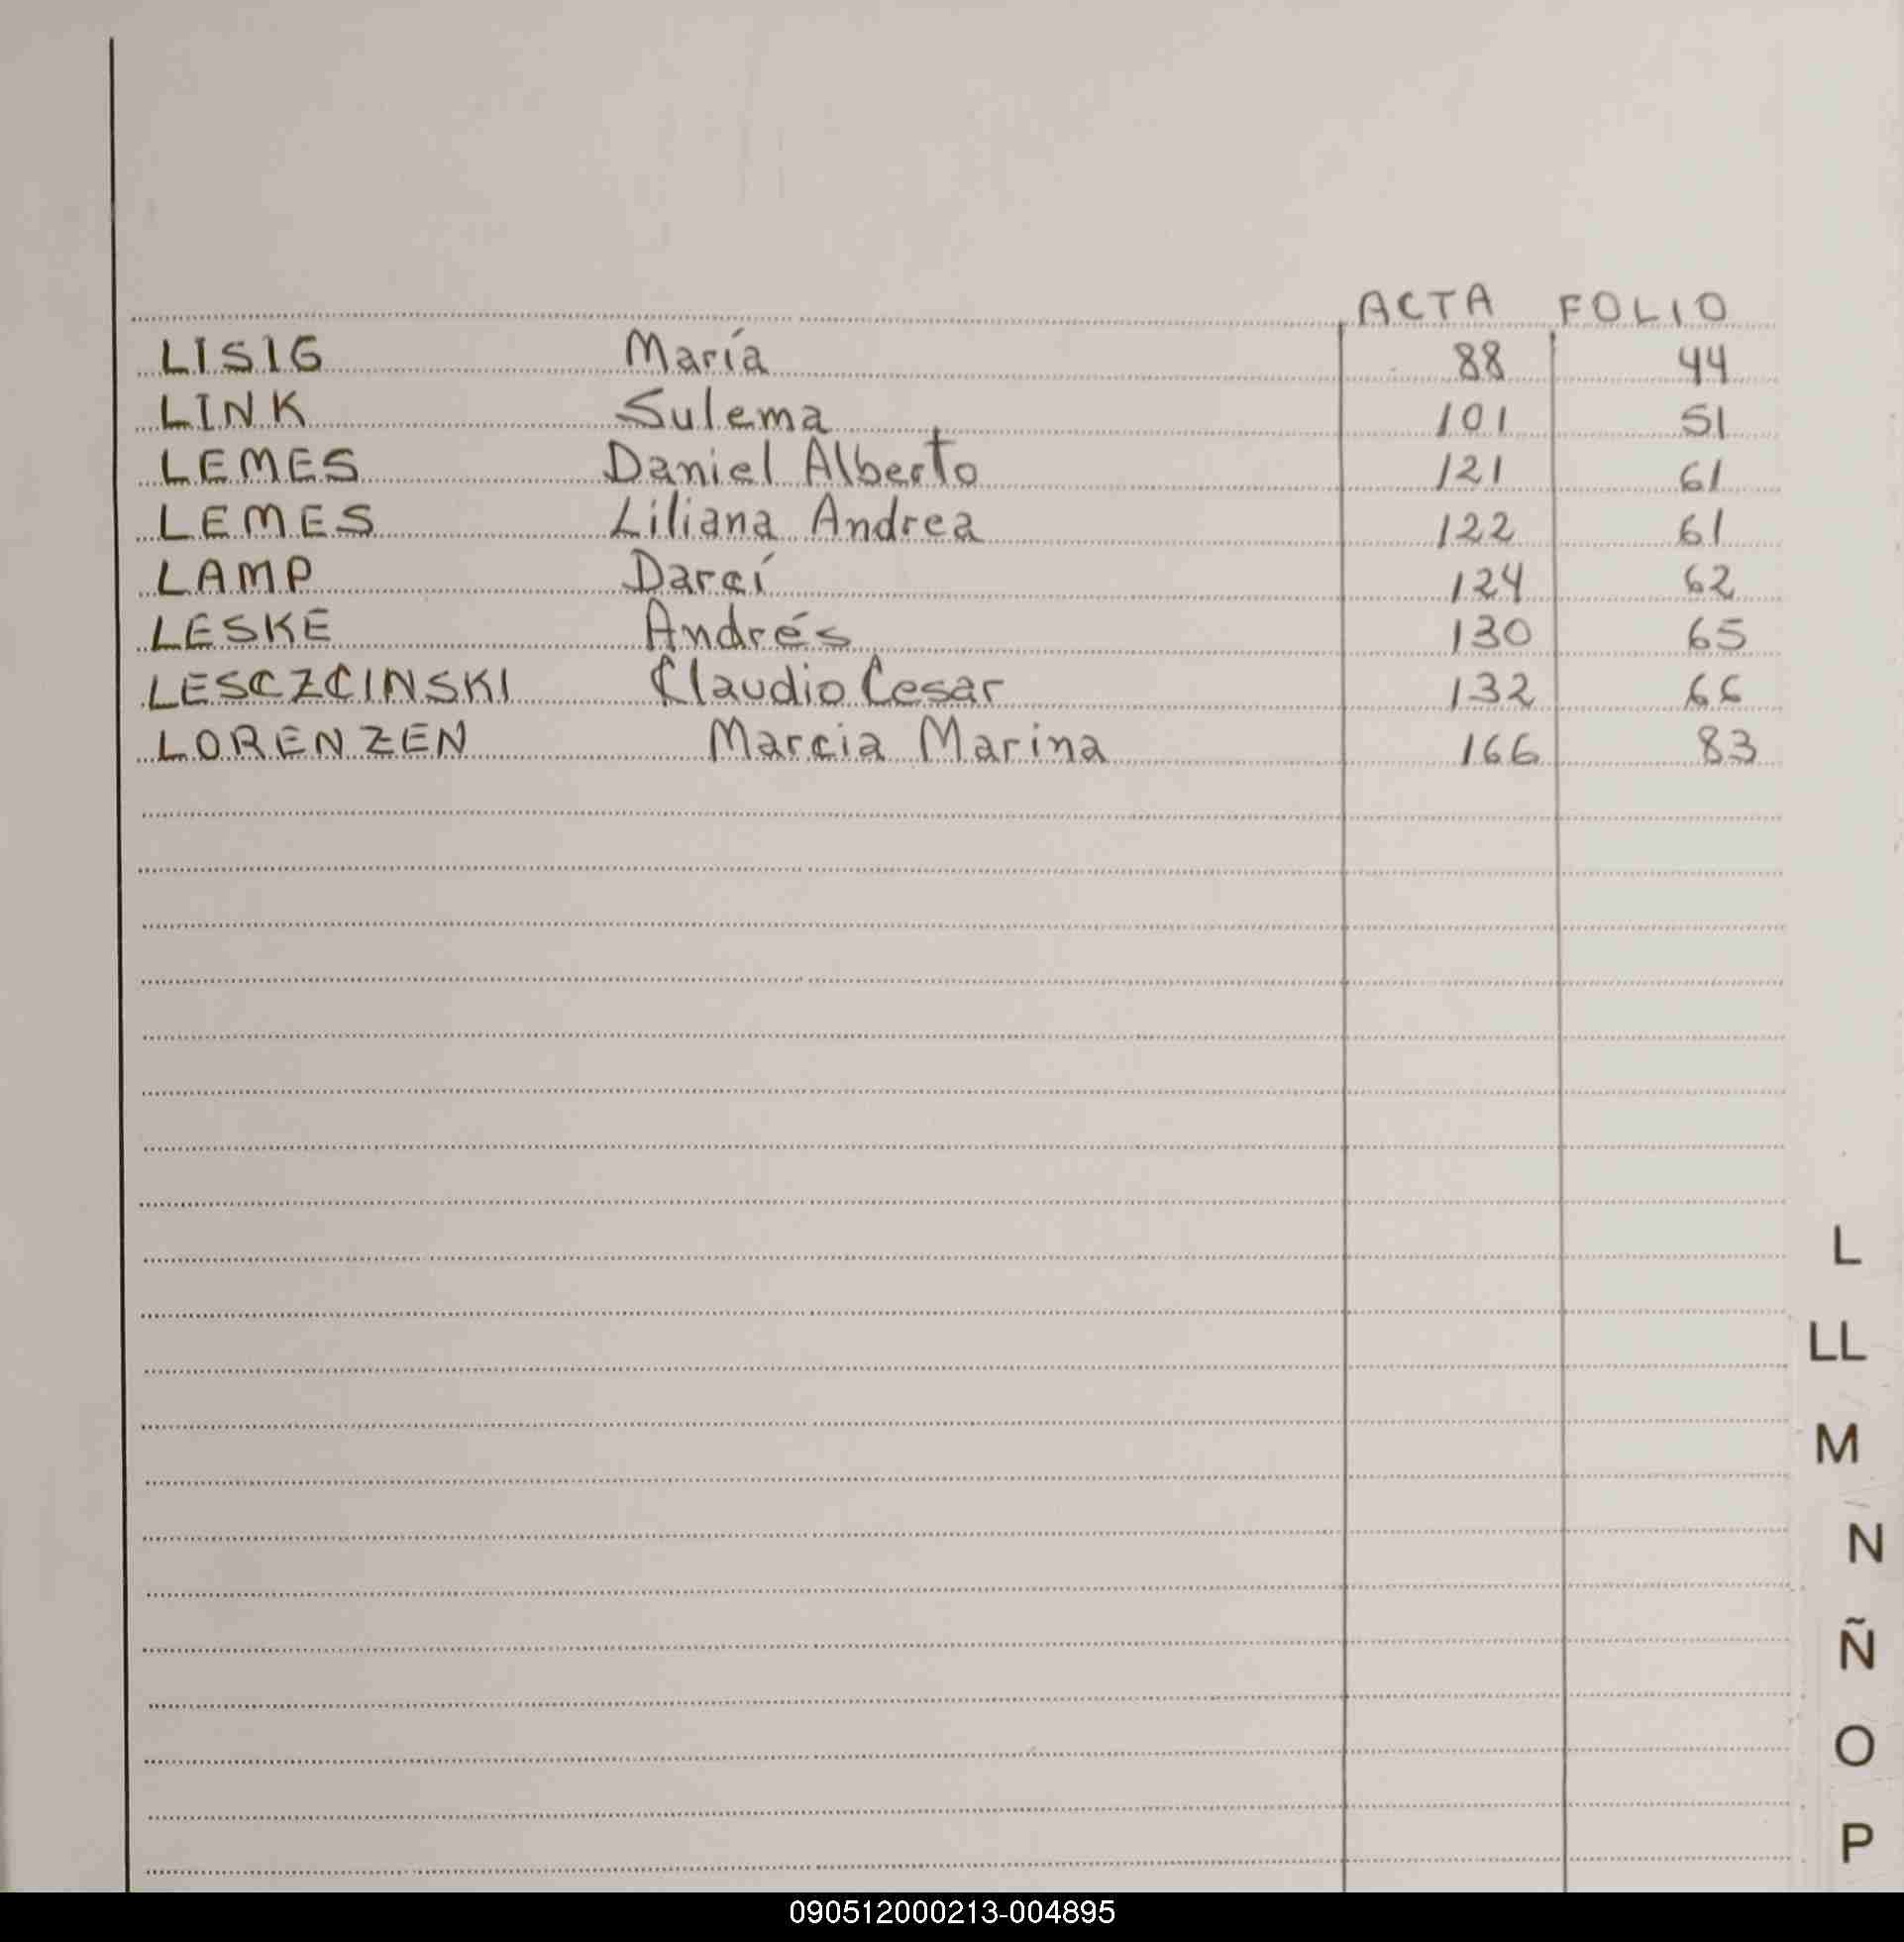 ACTA FOLIO
LISIG María 88 44
LINK Sulema 101 51
LEMES Daniel Alberto 121 61
LEMES Liliana Andrea 122 61
LAMP Darcí 124 62
LESKE Andrés 130 65
LESCZCINSKI Claudio Cesar 132 66
LORENZEN Marcia Marina 166 83
L
LL
M
N
Ñ
O
P
090512000213-004895